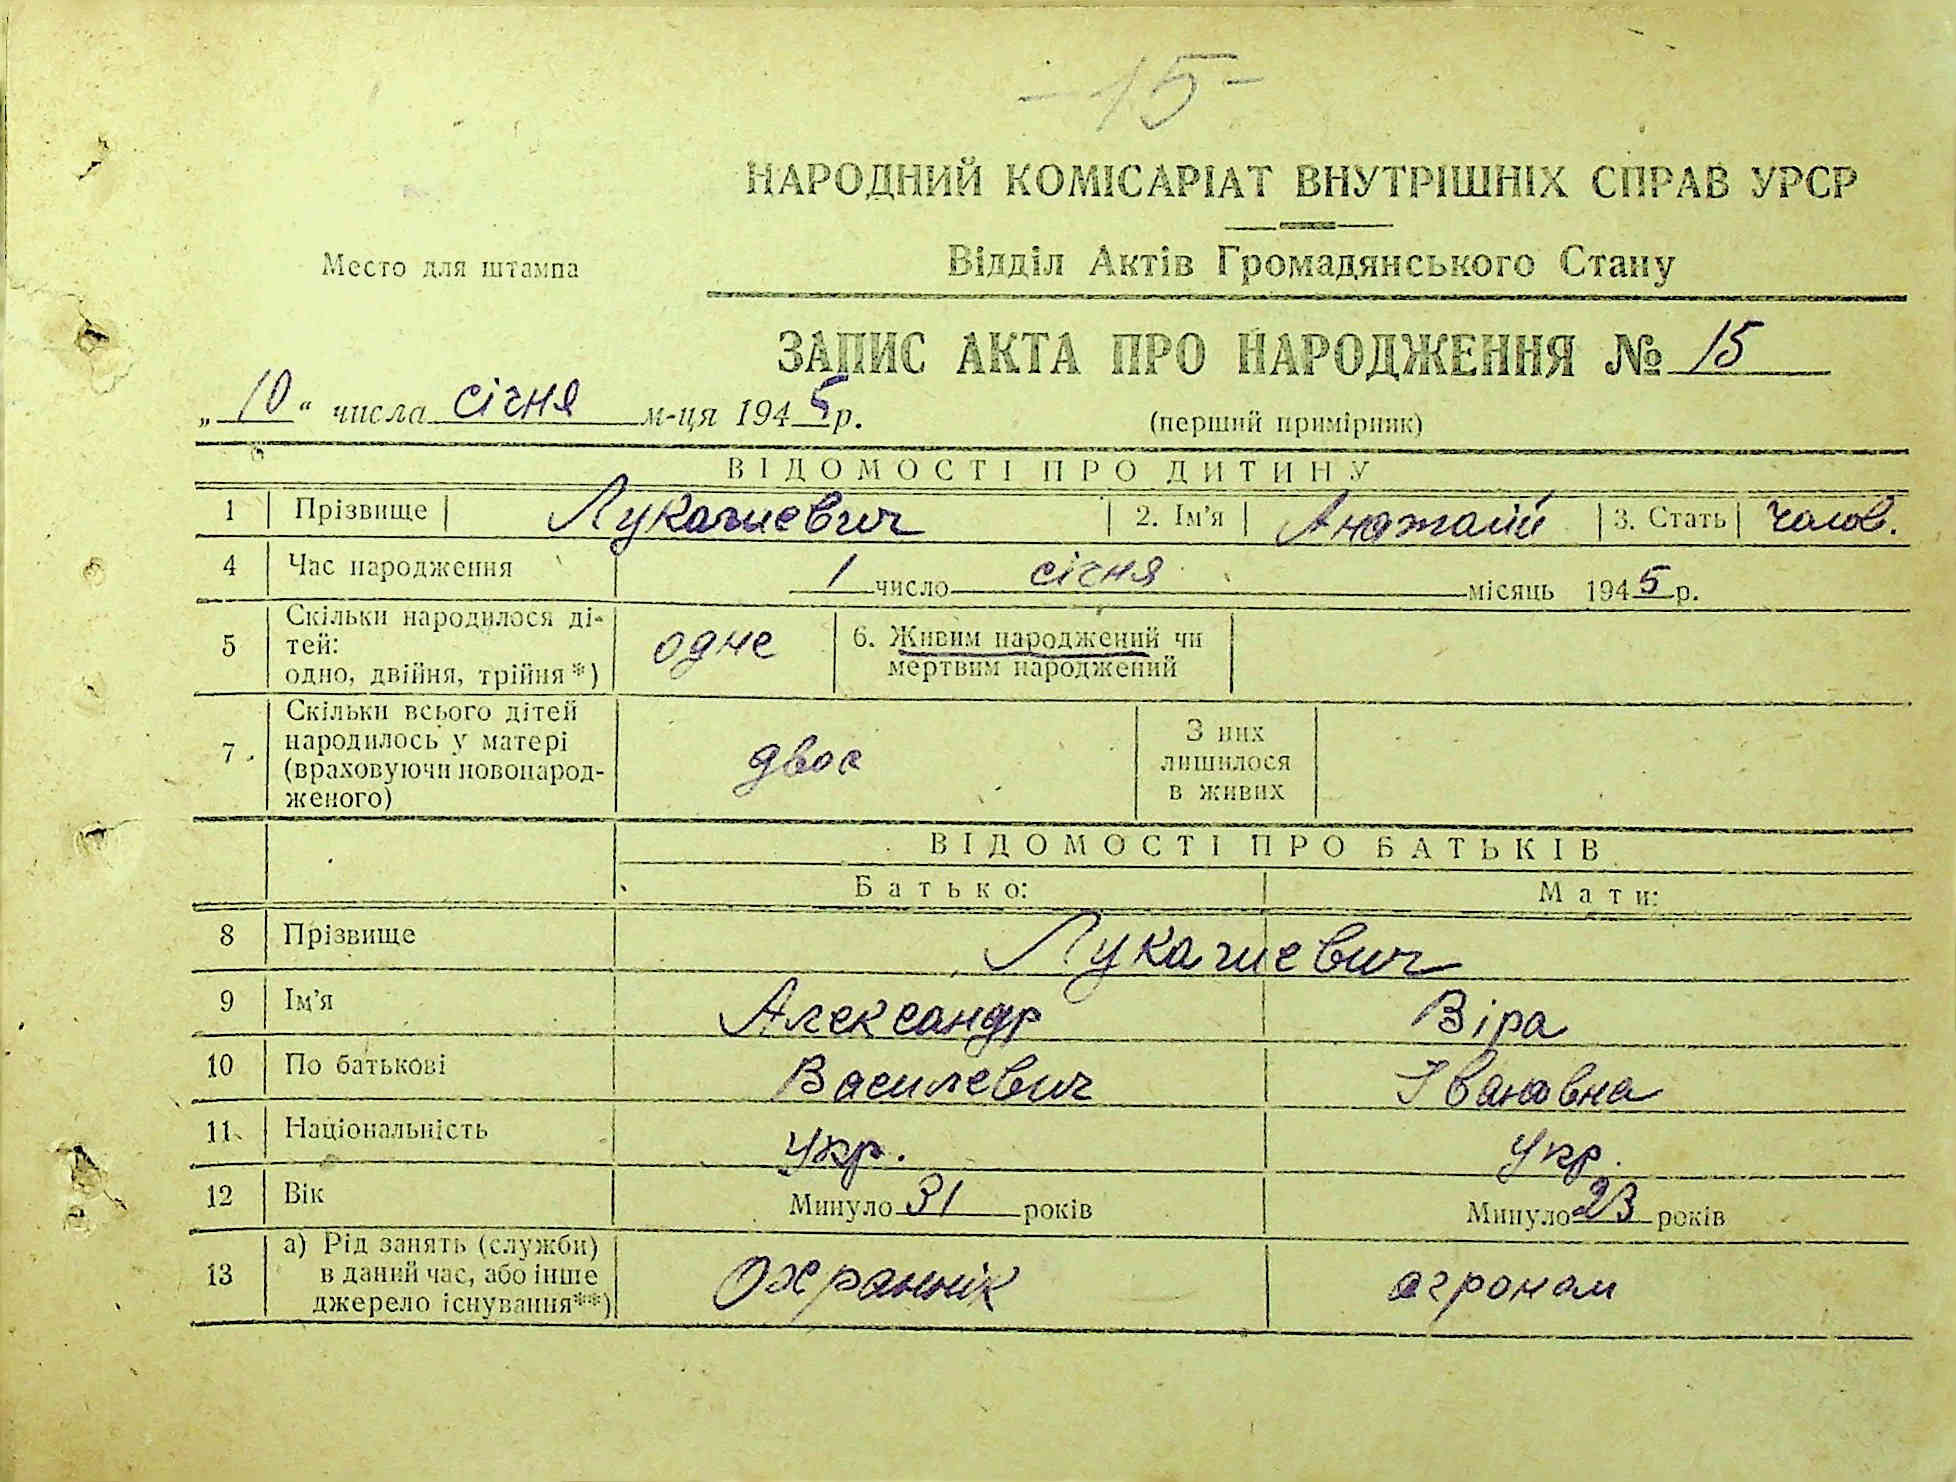 -15-
НАРОДНИЙ КОМІСАРІАТ ВНУТРІШНІХ СПРАВ УРСР
Место для штампа
Відділ Актів Громадянського Стану
ЗАПИС АКТА ПРО НАРОДЖЕННЯ № 15
„10“ числа січня м-ця 1945 р.
(перший примірник)
ВІДОМОСТІ ПРО ДИТИНУ
1 Прізвище Лукашевич 2. Ім'я Анатолій 3. Стать чолов.
4 Час народження 1 число січня місяць 1945 р.
5 Скільки народилося ді-
тей:
одно, двійня, трійня*) одне 6. Живим народжений чи
мертвим народжений
7 Скільки всього дітей
народилось у матері
(враховуючи новонарод-
женого) двоє З них
лишилося
в живих
ВІДОМОСТІ ПРО БАТЬКІВ
Батько: Мати:
8 Прізвище Лукашевич
9 Ім'я Александр Віра
10 По батькові Василевич Івановна
11 Національність укр. укр.
12 Вік Минуло 31 років Минуло 23 років
13 а) Рід занять (служби)
в даний час, або інше
джерело існування**) Охраннік агроном